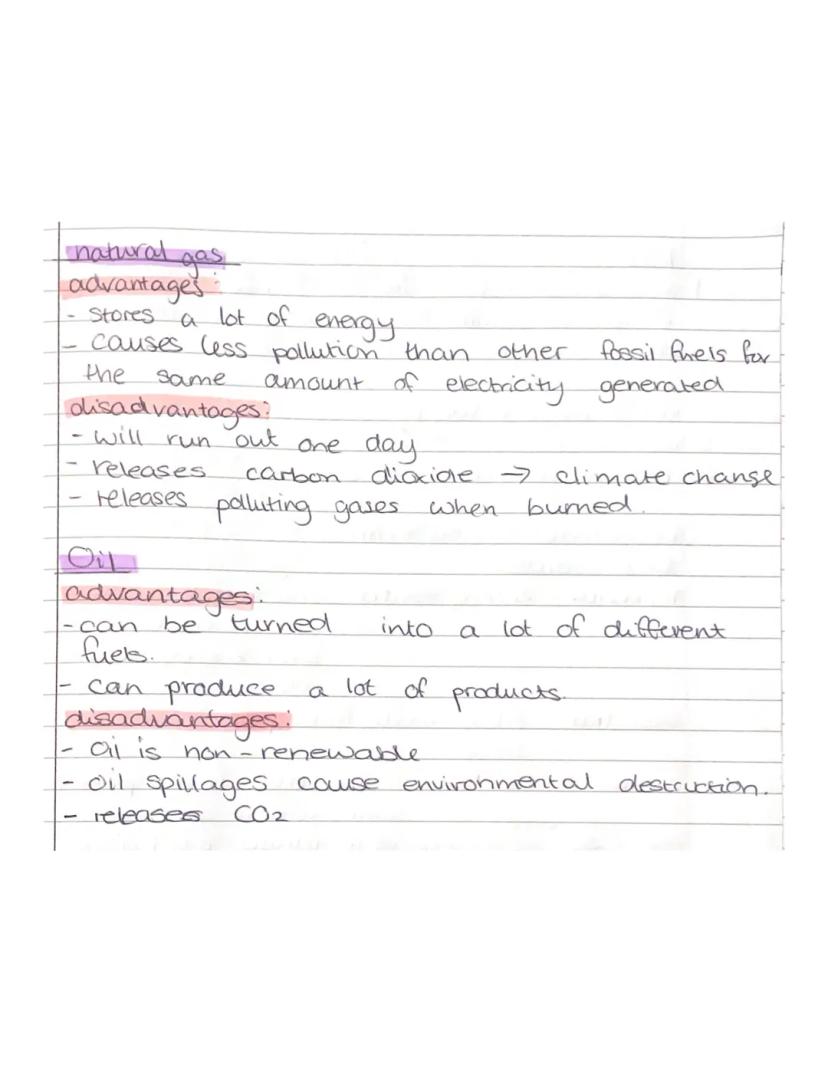 natural gas
advantages:
- stores a lot of energy
- causes less pollution than other fossil fuels for
the same amount of electricity generated
disadvantages:
- will run out one day
- releases carbon dioxide → climate change
- releases polluting gases when burned.
Oil
advantages:
- can be turned into a lot of different
fuels.
- can produce a lot of products.
disadvantages:
- oil is non-renewable
- oil spillages cause environmental destruction.
- releases CO2